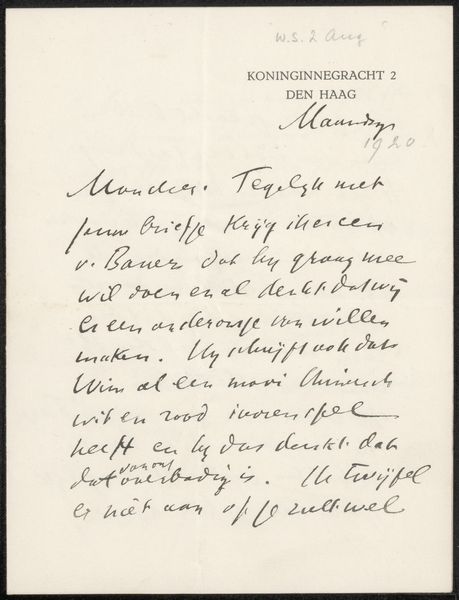 w.s. 2 Aug
KONINGINNEGRACHT 2
DEN HAAG
Maandag
1920
Tegelijk met
jouw briefje krijg ik er een
v. Bauer dat hij graag mee
wil doen en al denkt dat wij
er een onderonsje van willen
maken. Hij schrijft ook dat
Wim al een mooi Chineesch
wit en rood ivoren spel
heeft en hij dus denkt dat
dat van ons overbodig is. Ik twijfel
er niet aan of je zult wel